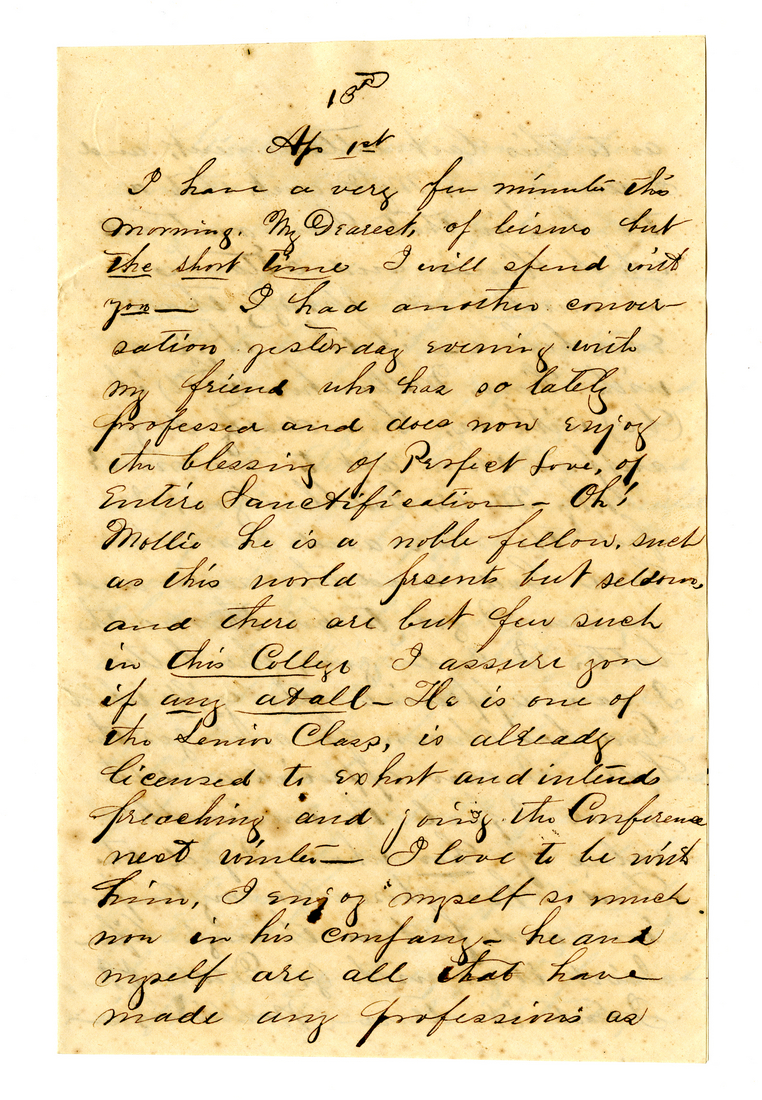 13rd
Ap 1st
I have a very few minutes this
morning, My Dearest, of leisure but
the short time I will spend with
you — I had another conver-
sation yesterday evening with
my friend who has so lately
professed and does now enjoy
the blessing of Perfect Love, of
Entire Sanctification — Oh!
Mollie he is a noble fellow, such
as this world presents but seldom,
and there are but few such
in this College I assure you
if any at all — He is one of
the Senior Class, is already
licensed to exhort and intends
preaching and joining the Conference
next winter — I love to be with
him, I enjoy myself so much
now in his company — he and
myself are all that have
made any professions as